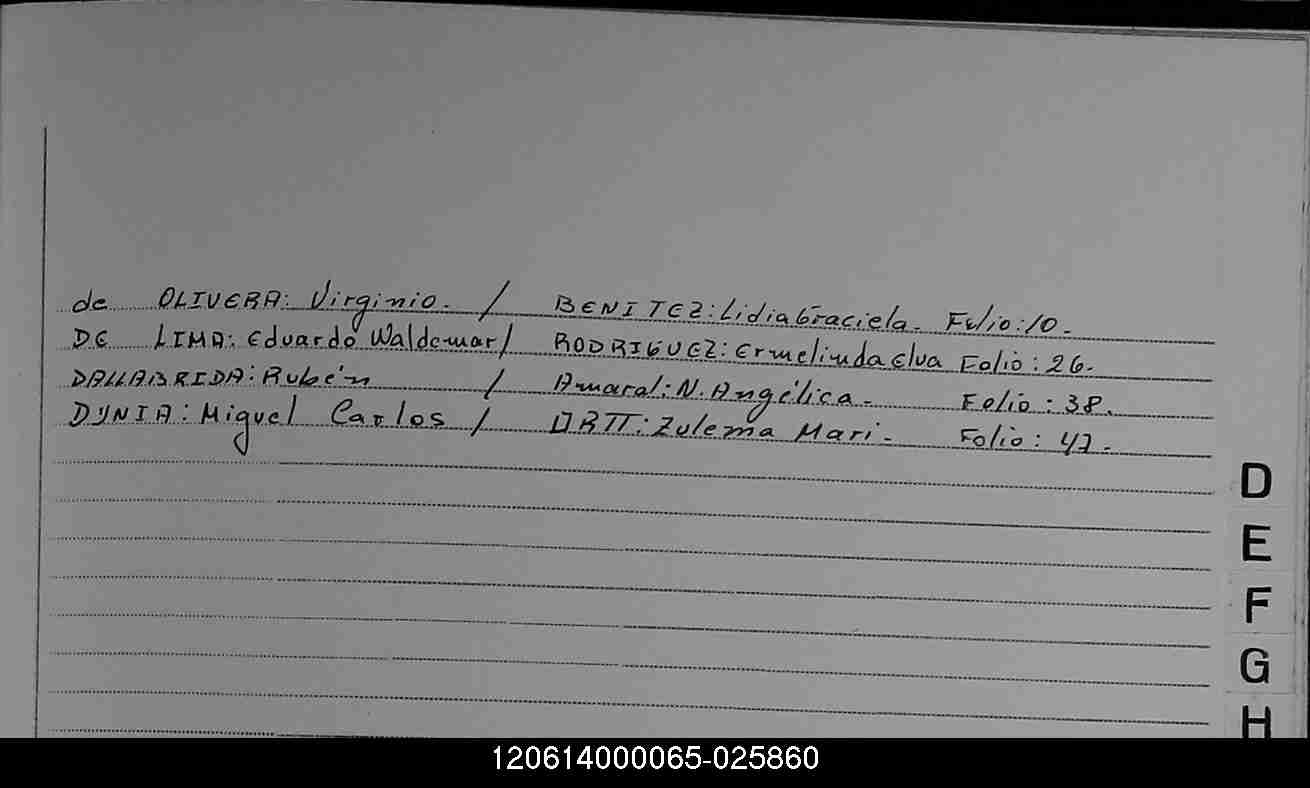 de OLIVERA: Virginio. / BENITEZ: Lidia Graciela. Folio: 10.
DE LIMA: Eduardo Waldemar / RODRIGUEZ: Ermelinda Elva Folio: 26.
DALLABRIDA: Rubén / Amaral: N. Angélica. Folio: 38.
DYNIA: Miguel Carlos / ORTT: Zulema Mari. Folio: 47.
D
E
F
G
H
120614000065-025860